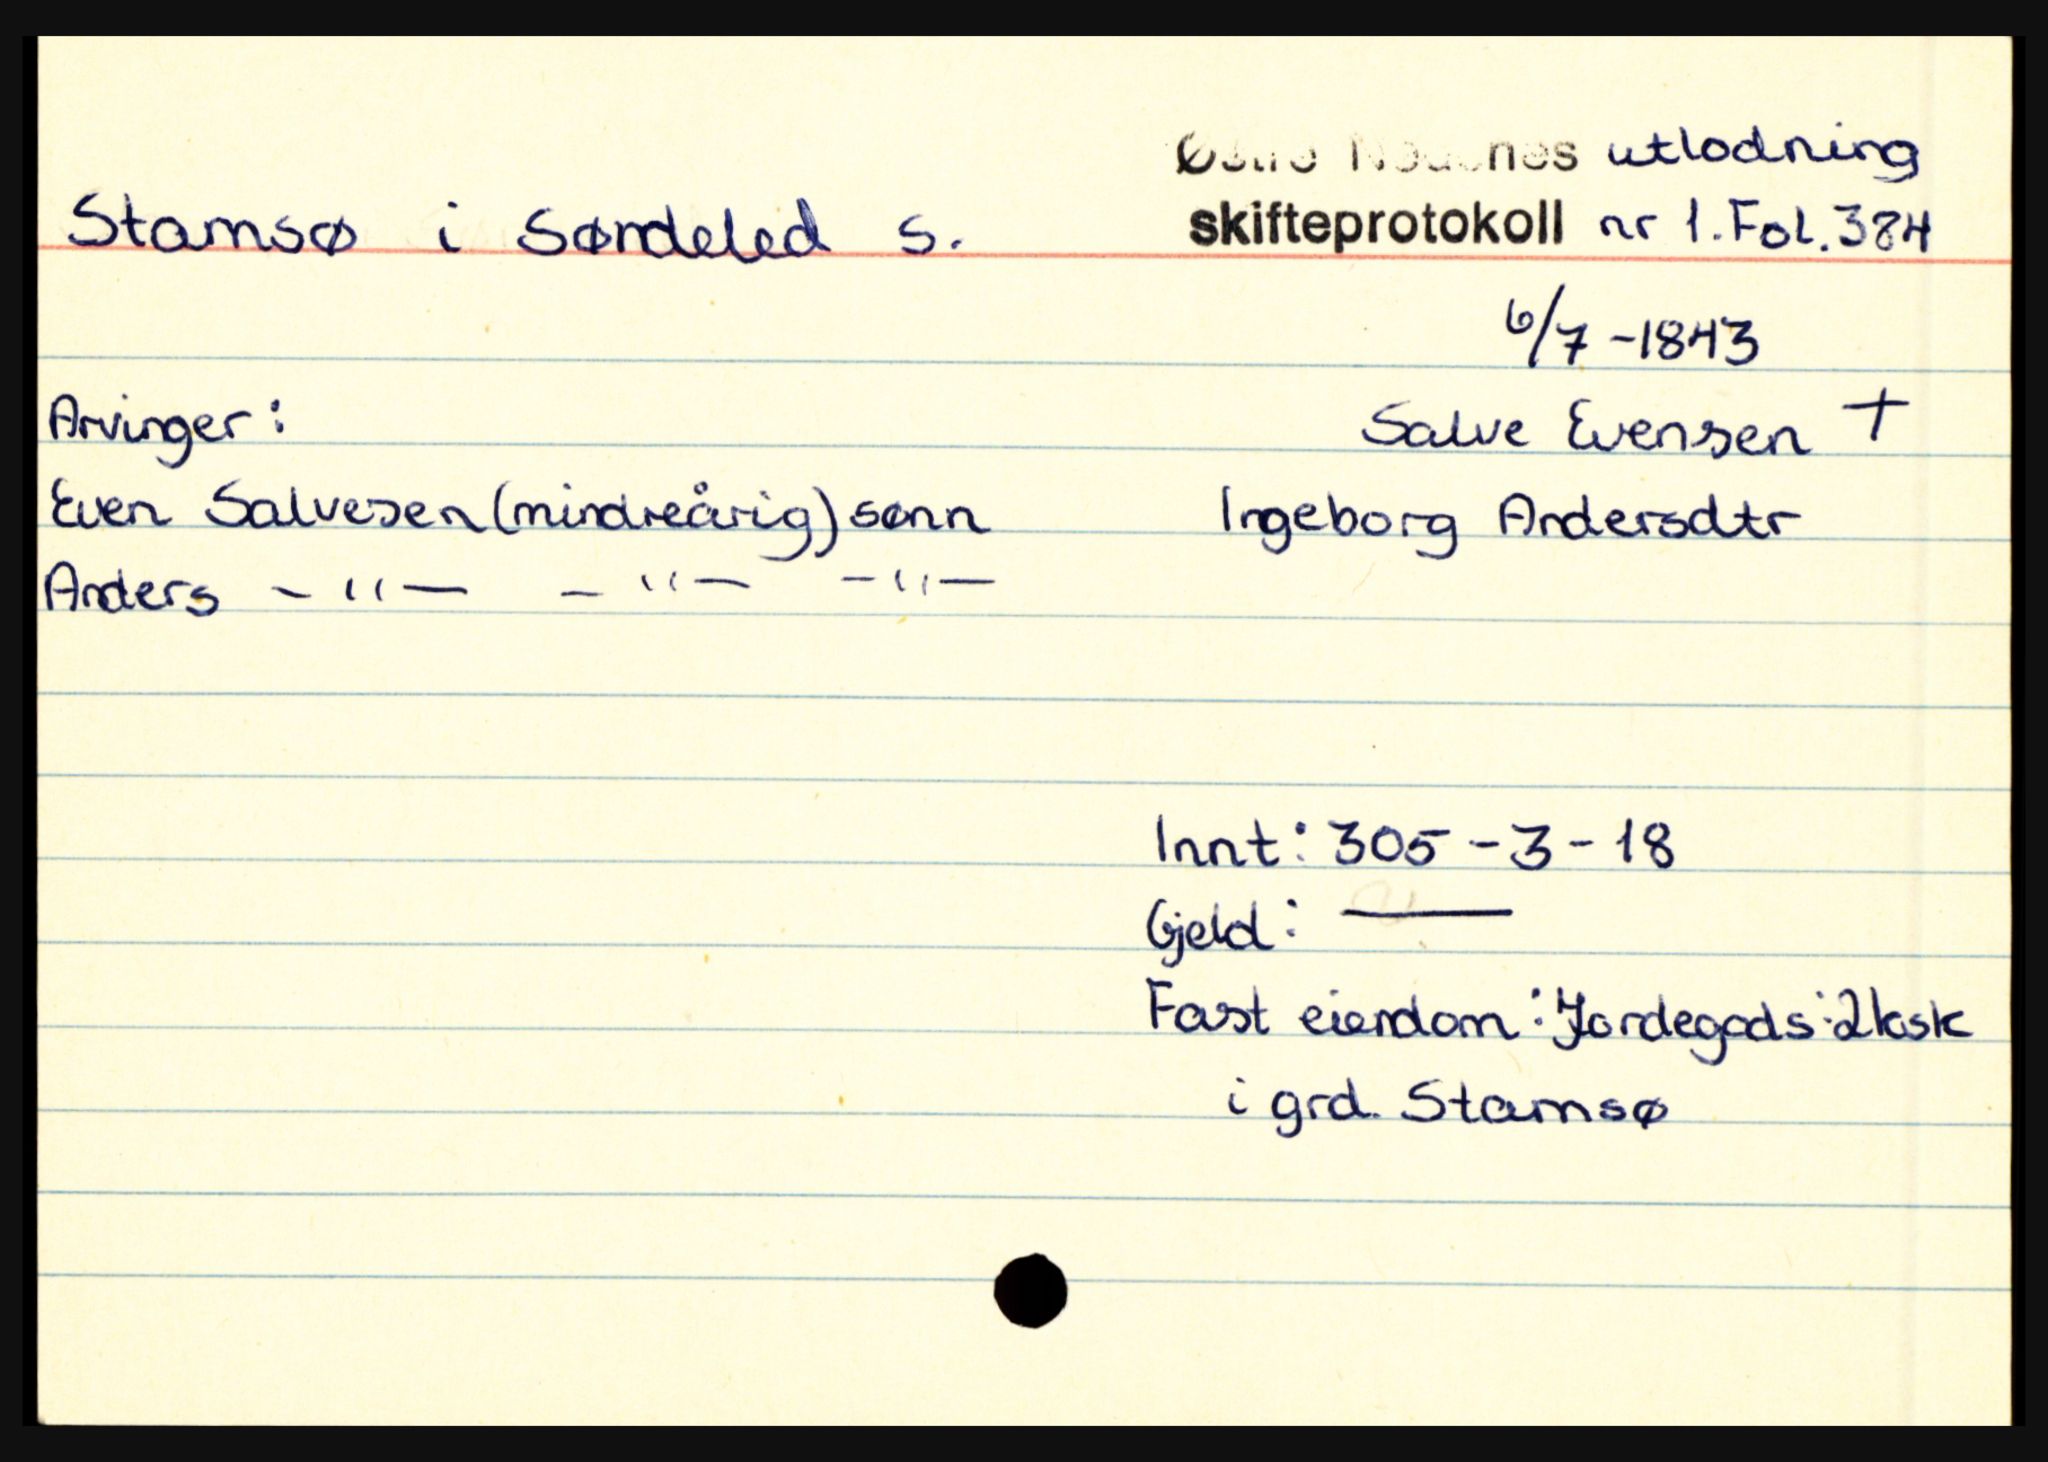 Østre Nedenes utlodning
Stamsø i Søndeled s. skifteprotokoll nr 1. Fol. 384
6/7 -1843
Arvinger: Salve Evensen +
Even Salvesen (mindreårig) sønn Ingeborg Andersdtr
Anders — " — — " — — " —
Innt: 305 - 3 - 18
Gjeld: —
Fast eiendom: Jordegods:
i grd. Stamsø